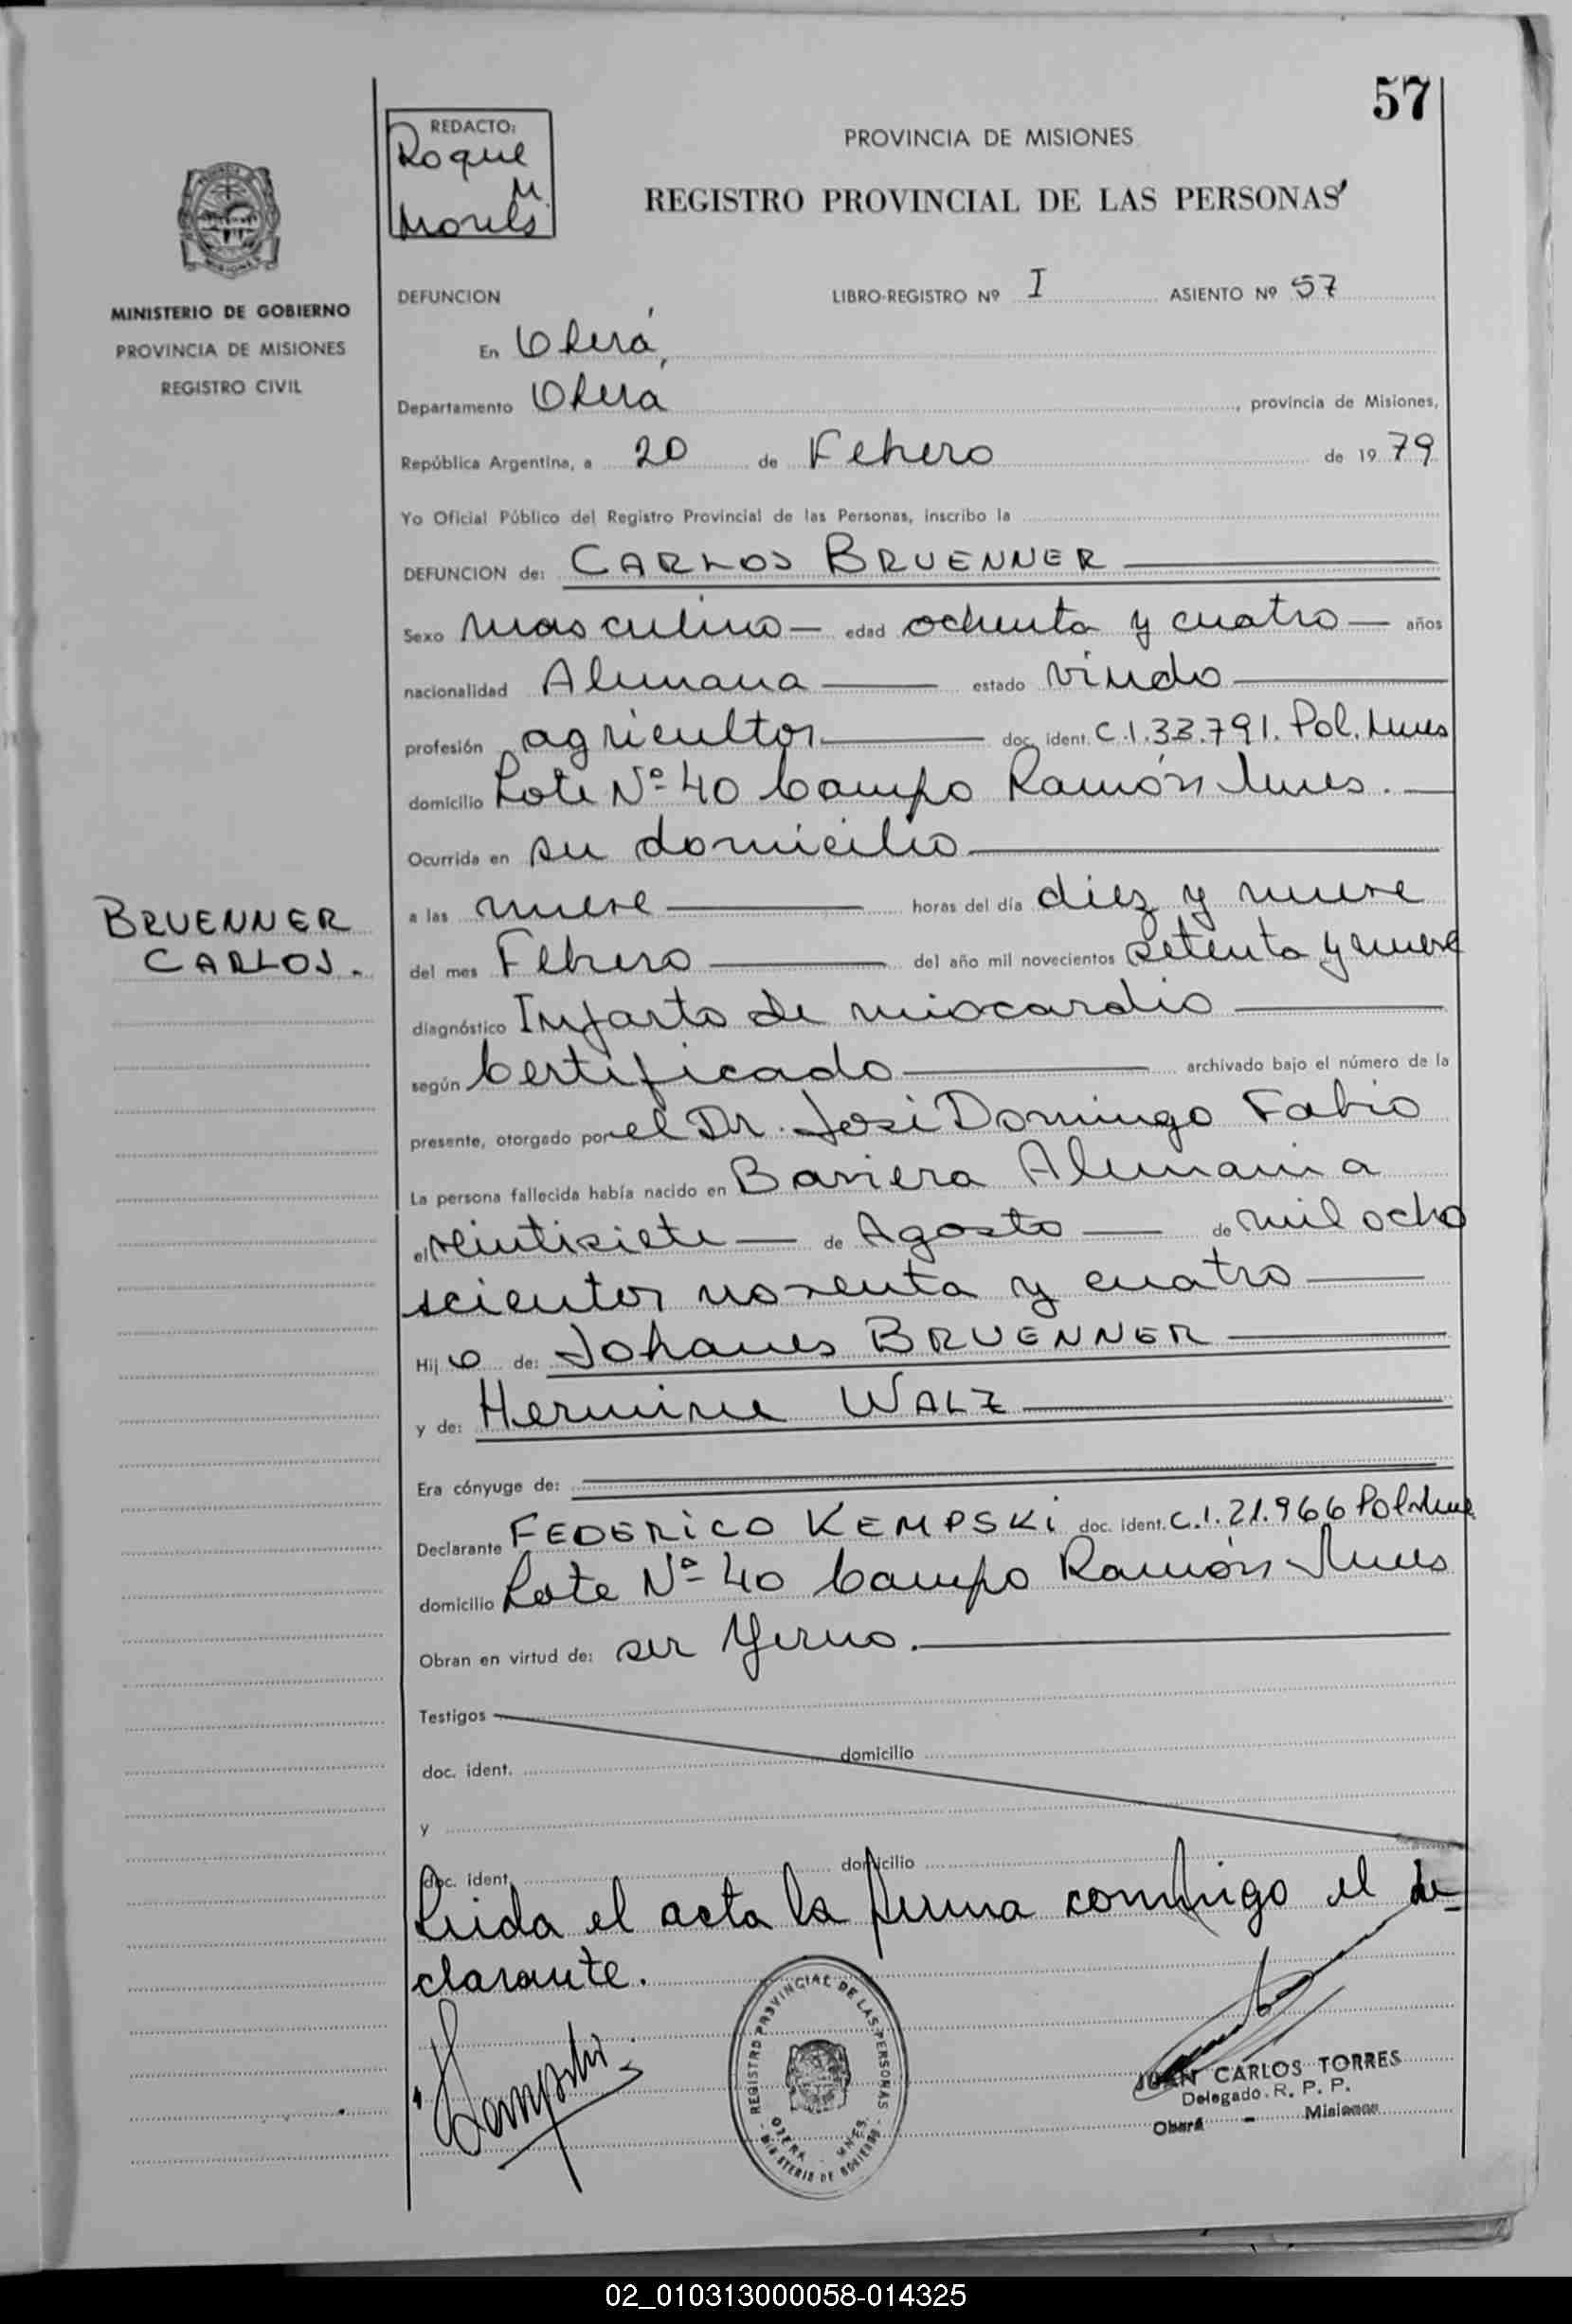 57
REDACTO:
Roque
M.
PROVINCIA DE MISIONES
REGISTRO PROVINCIAL DE LAS PERSONAS
MINISTERIO DE GOBIERNO
PROVINCIA DE MISIONES
REGISTRO CIVIL
DEFUNCION LIBRO-REGISTRO Nº I ASIENTO Nº 57
En Oberá,
Departamento Oberá, provincia de Misiones,
República Argentina, a 20 de Febrero de 1979
Yo Oficial Público del Registro Provincial de las Personas, inscribo la
DEFUNCION de: CARLOS BRUENNER
Sexo masculino edad ochenta y cuatro años
nacionalidad Alemana estado viudo
profesión agricultor doc. ident. C.I. 33.791. Pol. Mnes
domicilio Lote Nº 40 Campo Ramón Mnes.
Ocurrida en su domicilio
BRUENNER
CARLOS.
a las nueve horas del día diez y nueve
del mes Febrero del año mil novecientos setenta y nueve
diagnóstico Infarto de miocardio
según Certificado archivado bajo el número de la
presente, otorgado por el Dr. José Domingo Fabio
La persona fallecida había nacido en Baviera Alemania
el veintisiete de Agosto de mil ocho
scientos noventa y cuatro
Hijo de: Johanes BRUENNER
y de: Hermine WALZ
Era cónyuge de:
Declarante FEDERICO KEMPSKI doc. ident. C.I. 21.966 Pol Mnes
domicilio Lote Nº 40 Campo Ramón Mnes
Obran en virtud de: ser Yerno.
Testigos
doc. ident. domicilio
y
doc. ident. domicilio
Leida el acta la firma conmigo el de
clarante.
REGISTRO PROVINCIAL DE LAS PERSONAS
OBERA - MNES.
MINISTERIO DE GOBIERNO
JUAN CARLOS TORRES
Delegado R. P. P.
Oberá - Misiones
02_010313000058-014325